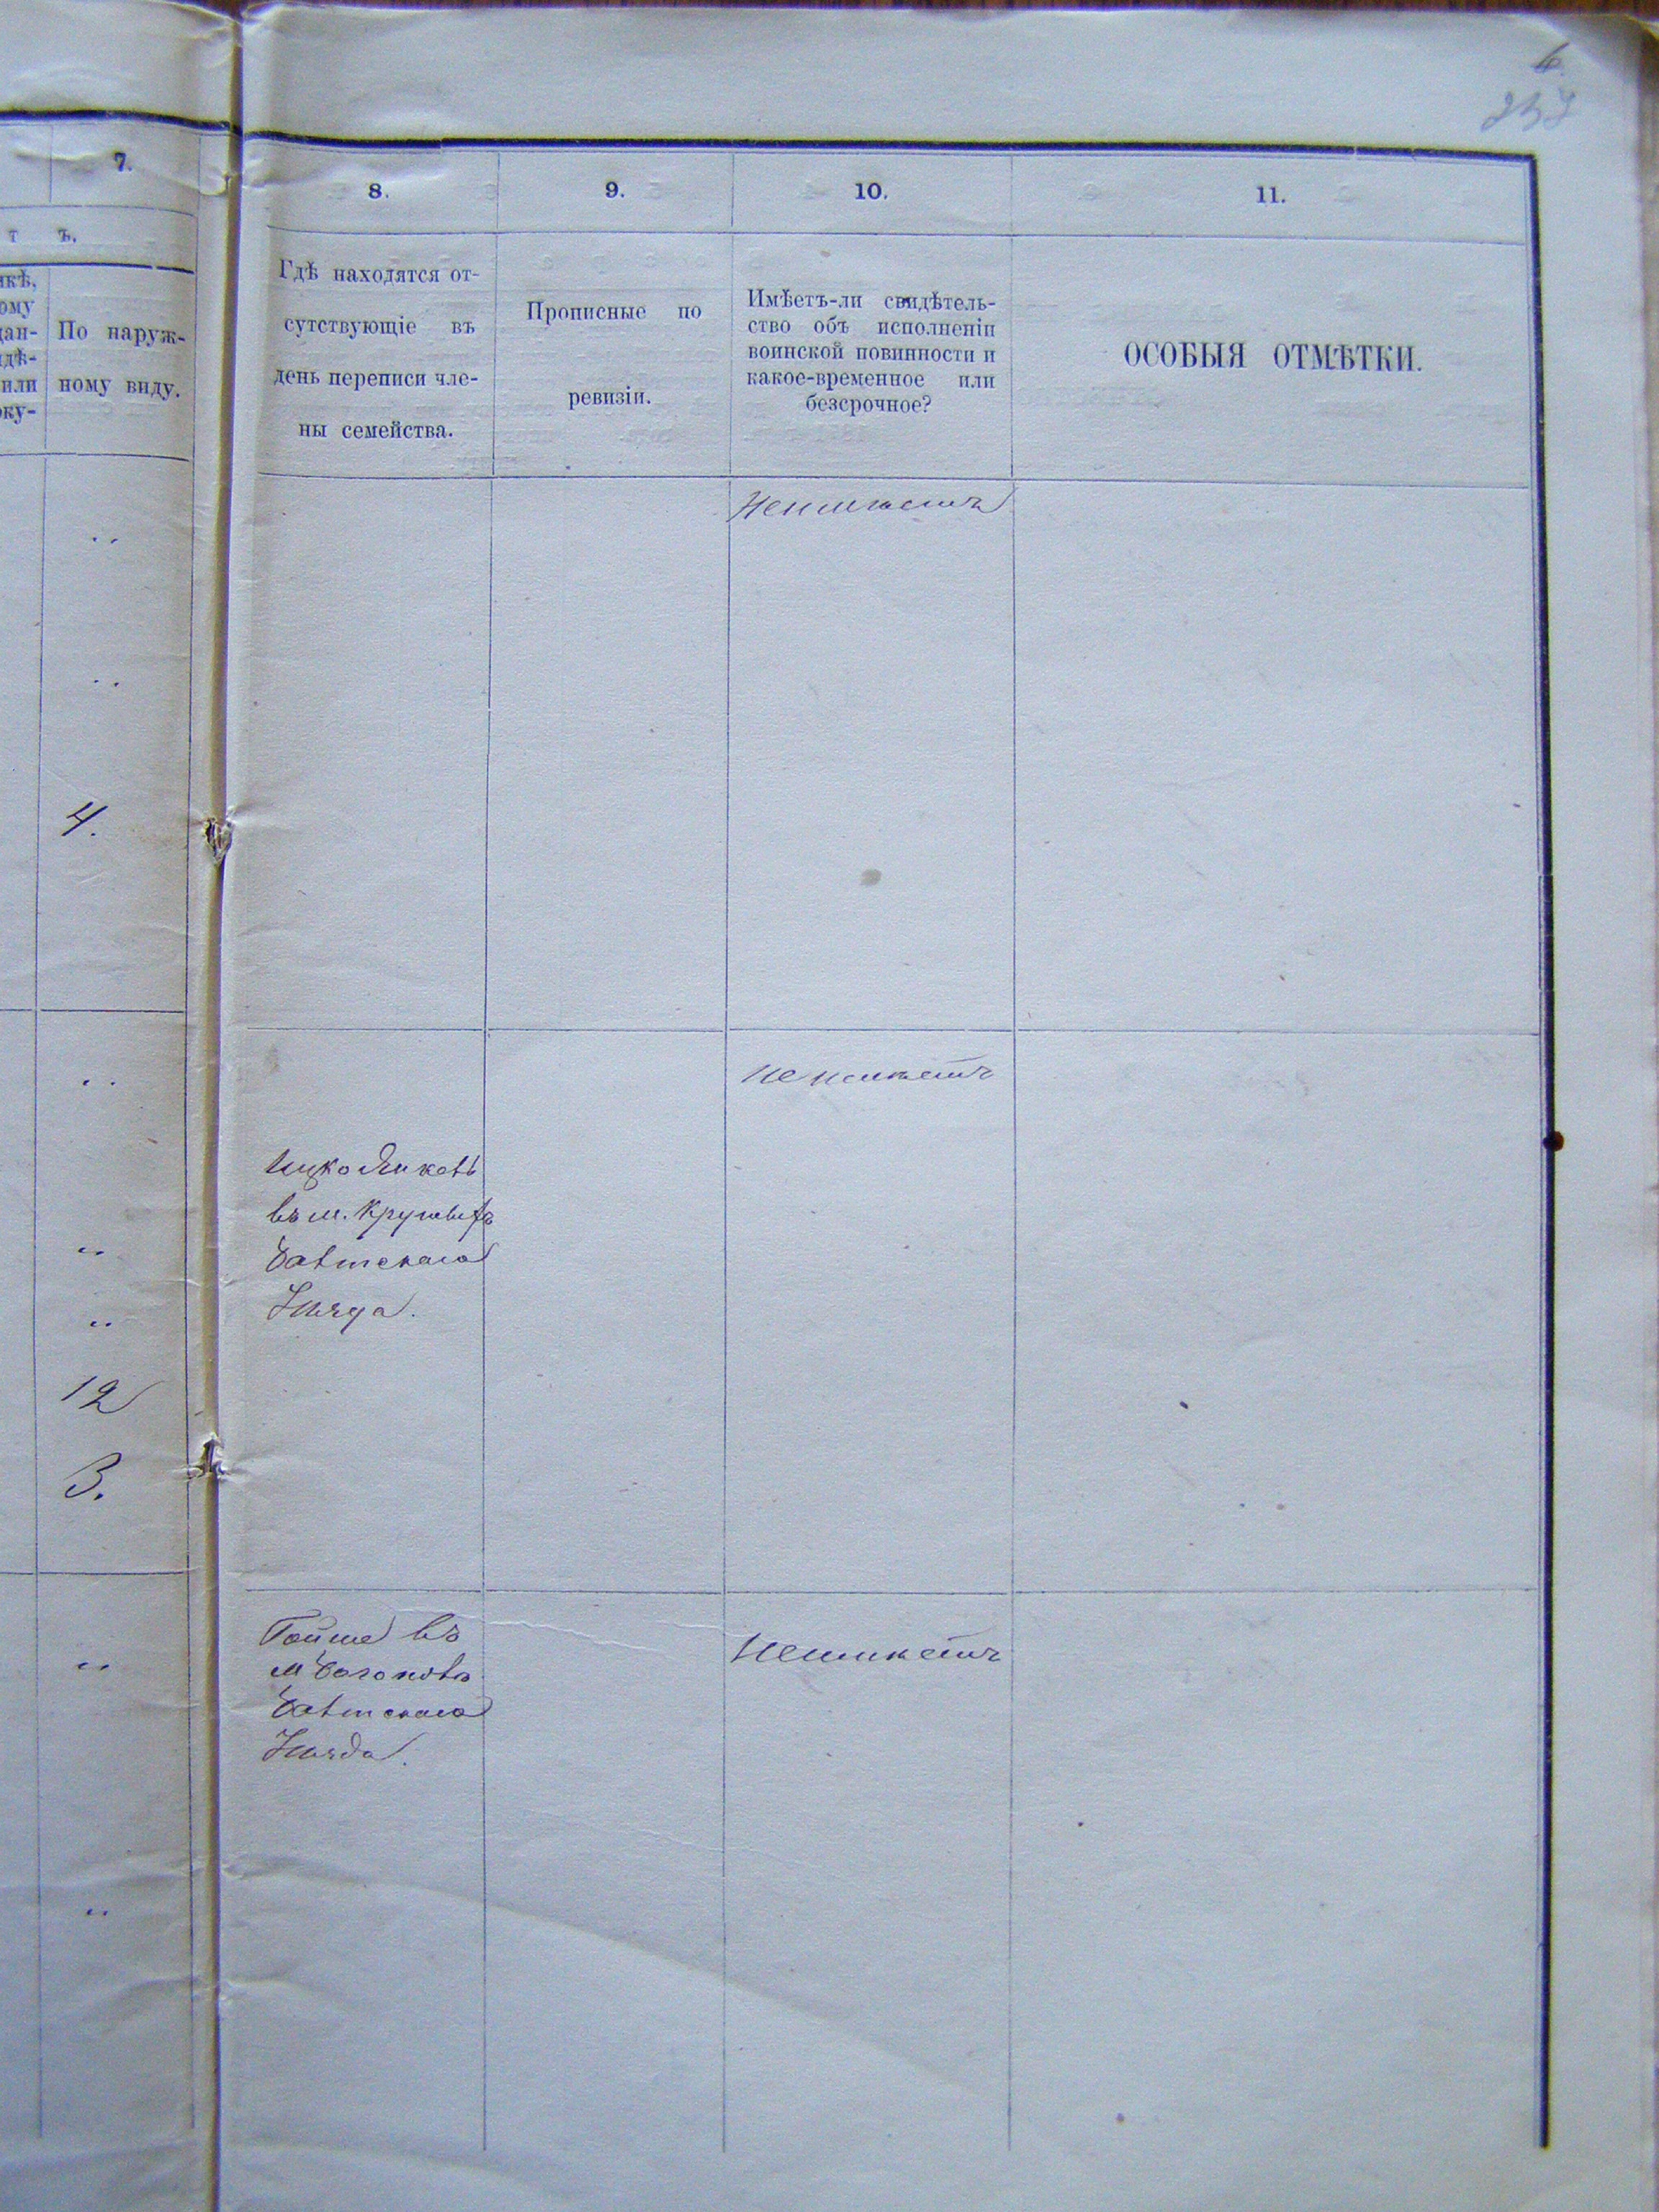 7.
8.
9.
10.
11.
т ъ.
По наруж-
ному виду.
Гдѣ находятся от-
сутствующіе въ
день переписи чле-
ны семейства.
Прописные по
ревизіи.
Имѣетъ-ли свидѣтель-
ство объ исполненіи
воинской повинности и
какое-временное или
безсрочное?
ОСОБЫЯ ОТМѢТКИ.
Неимѣетъ
4.
неимѣетъ
Ицко
въ м.
Балтскаго
Уѣзда.
12
3.
въ
Неимѣетъ
м
Балтскаго
Уѣзда.